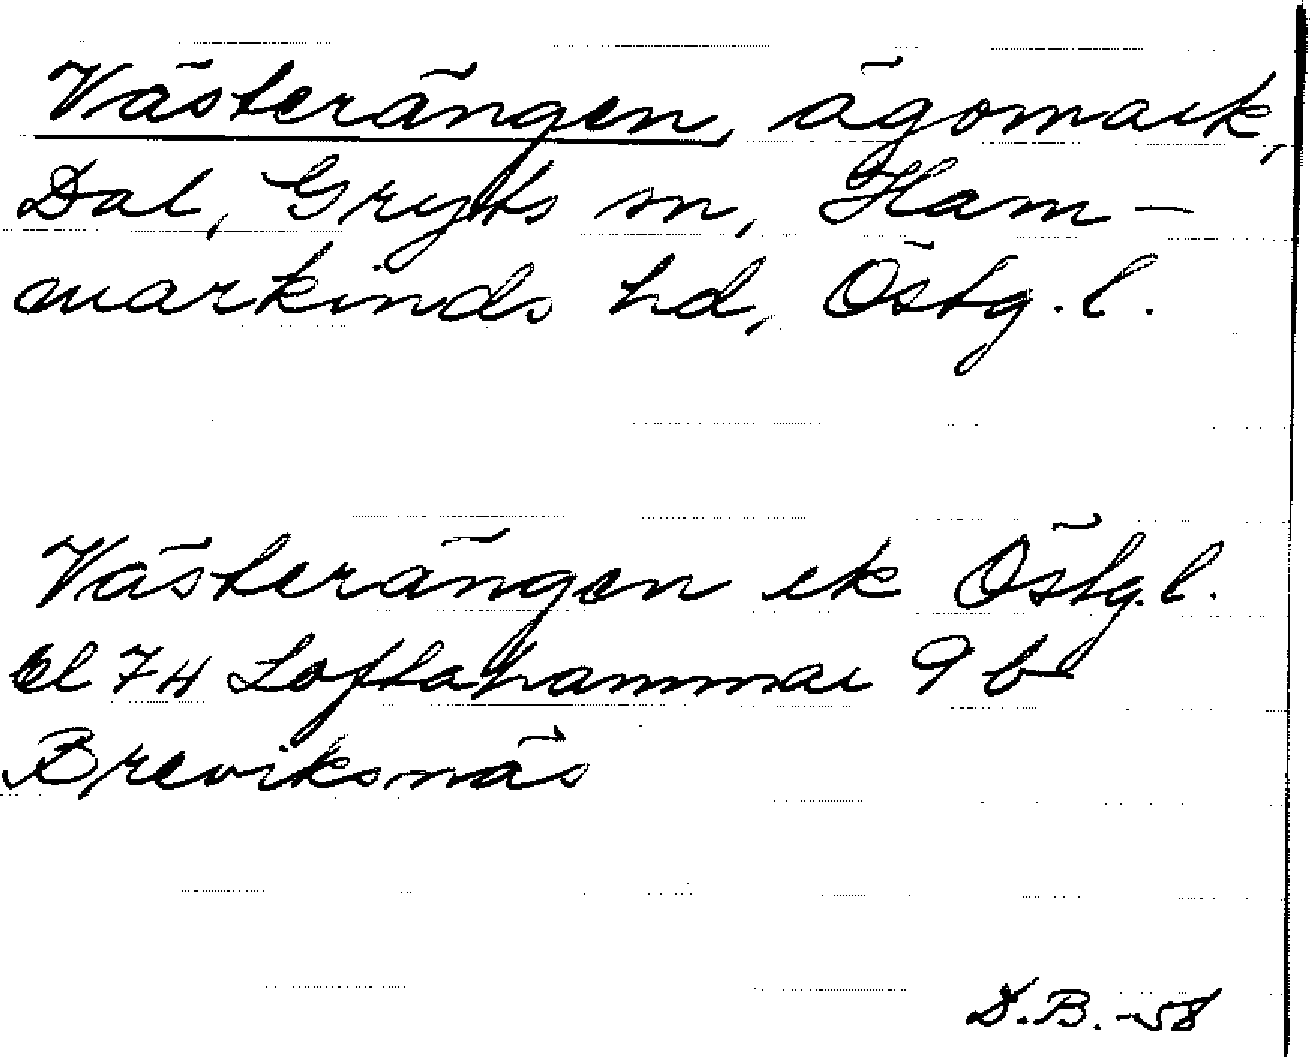 Västerängen, ägomark,
Dal, Gryts sn, Ham-
markinds hd, Östg. l.
Västerängen ek Östg. l.
El 74 Loftahammar 9 b
Breviksnäs
D.B. -58